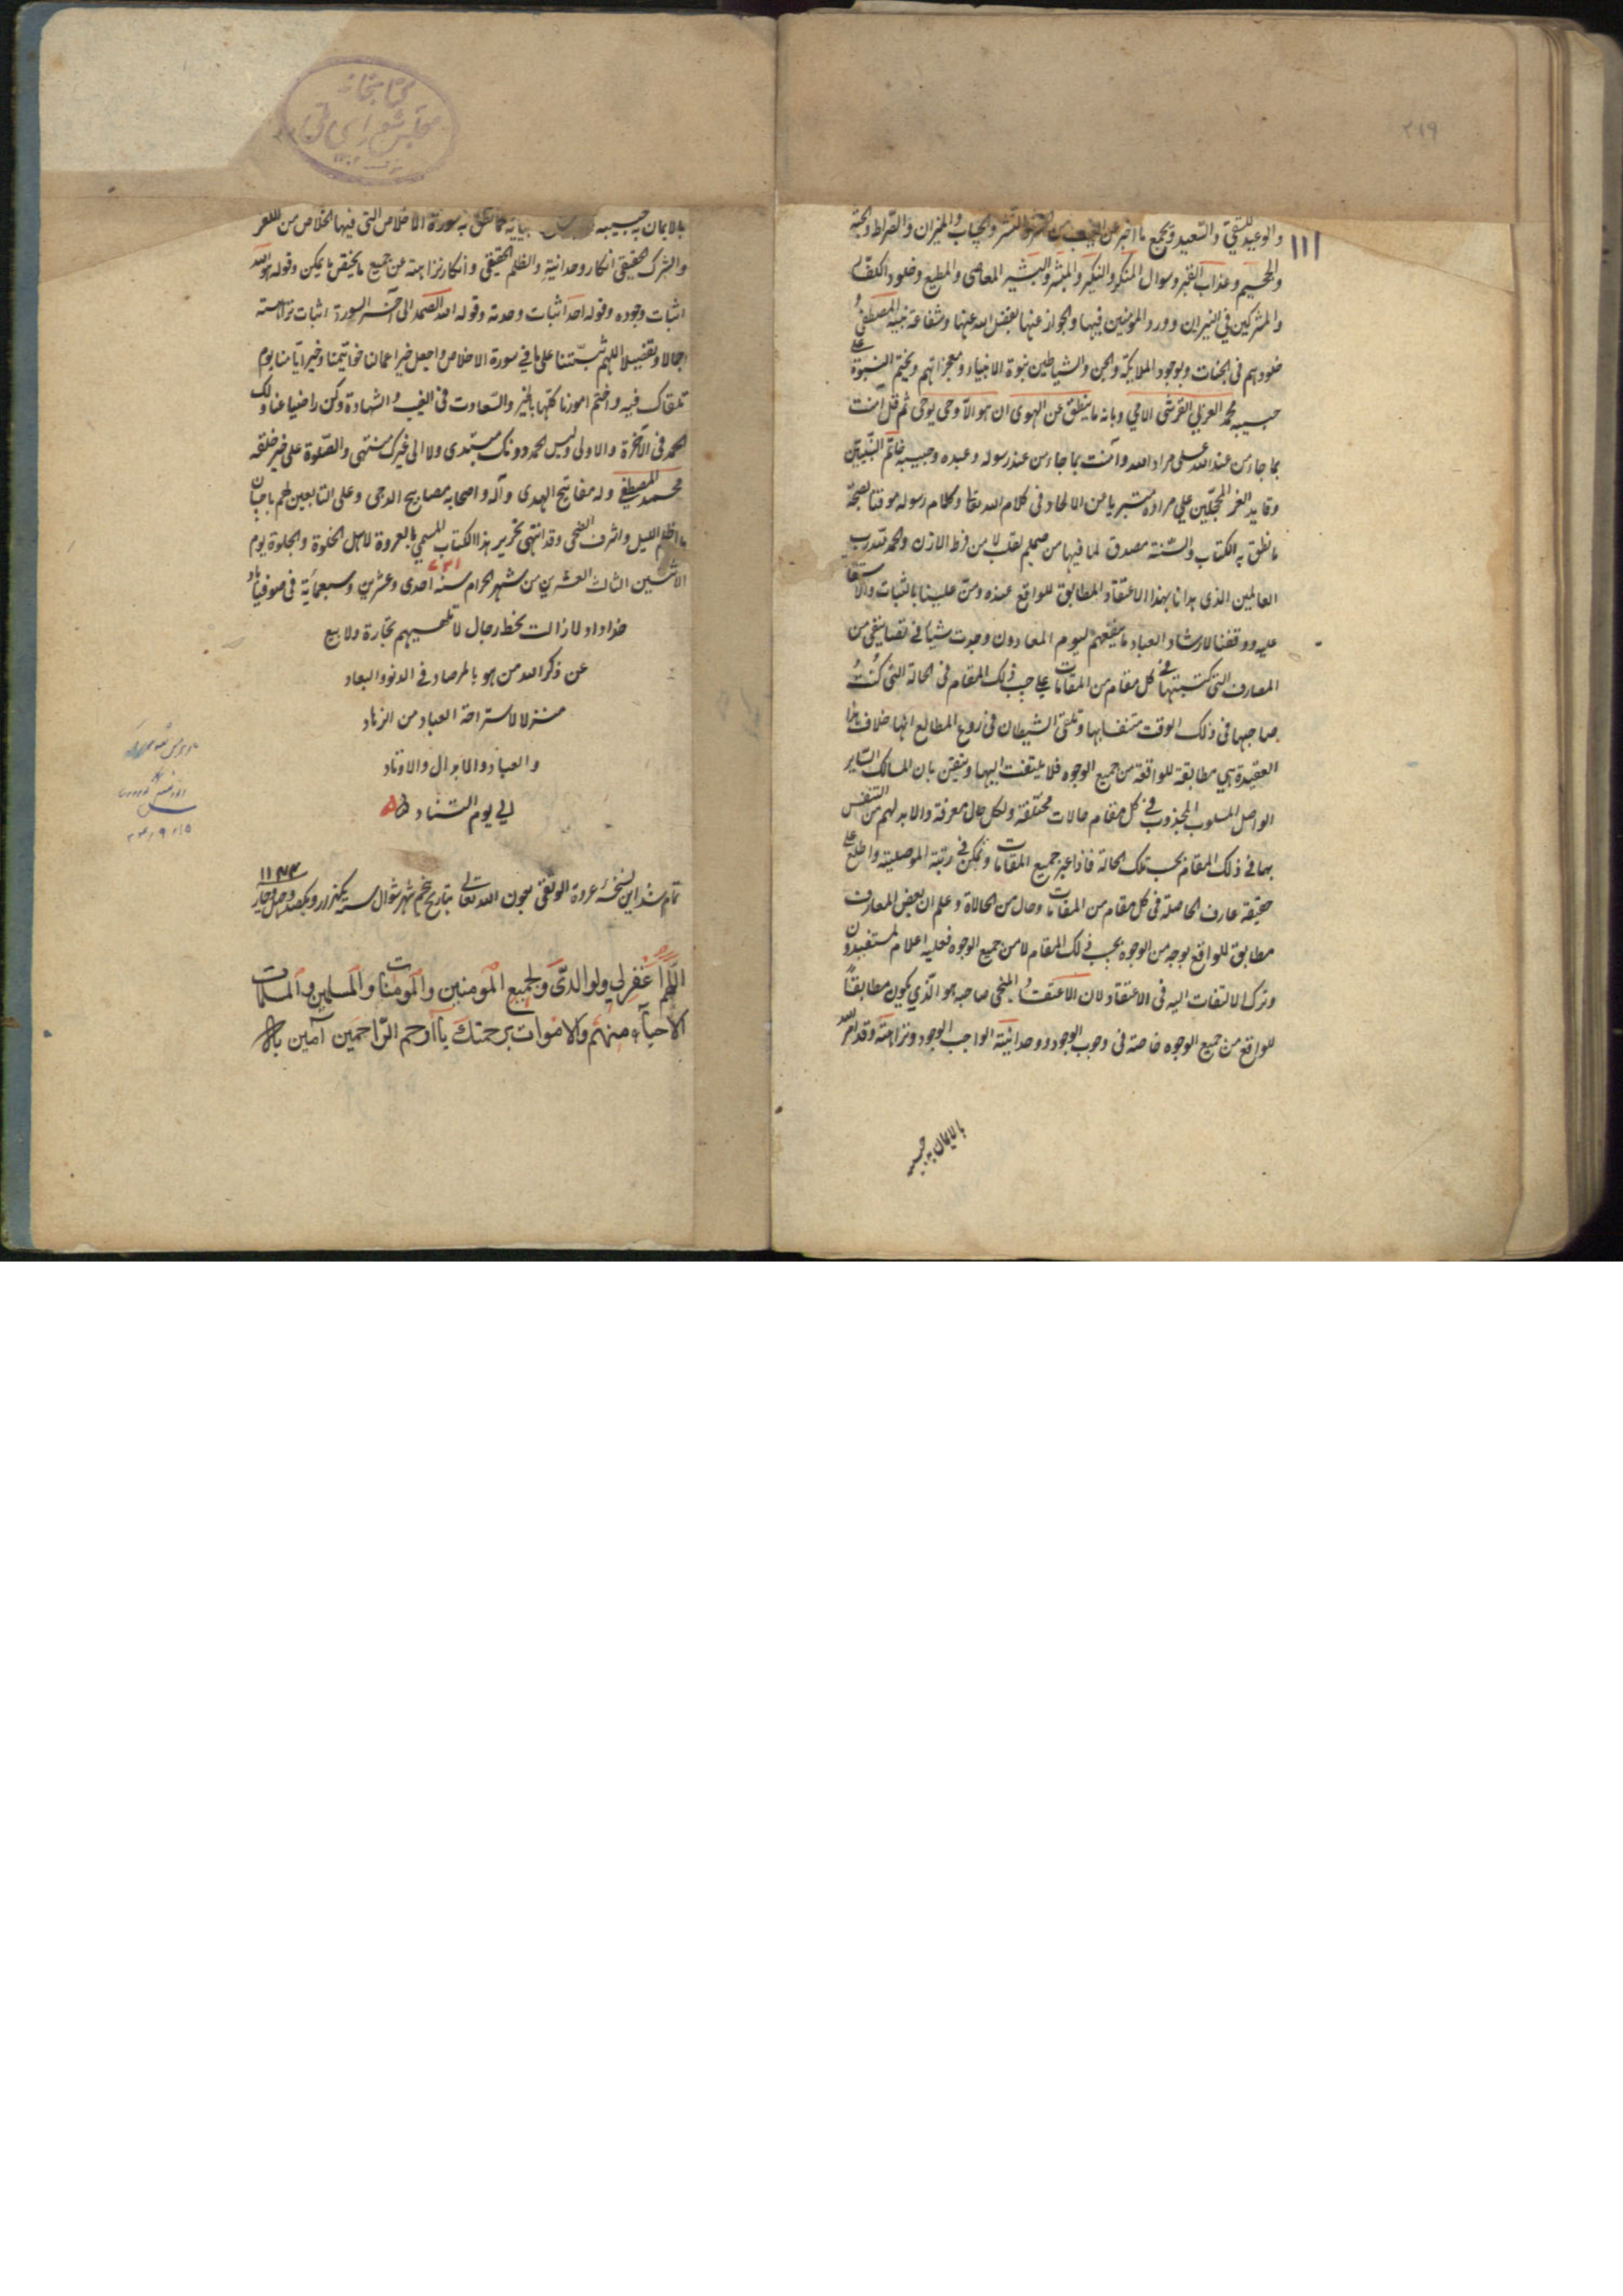 ٢١٩
١١١
والوعيد للشقي والسعيد وبجميع ما اخبر عن الحشر والنشر والحساب والميزان والصراط والجنة
والجحيم وعذاب القبر وسوال المنكر والنكير والمبشر والبشير المعاصى والمطيع وخلود الكفار
والمشركين فى النيران وورود المؤمنين فيها والجواز عنها بفضل الله عنها وشفاعة نبيه المصطفى و
خلودهم فى الجنات وبوجود الملايكة والجن والشياطين بنبوة الانبياء ومعجزاتهم وبختم النبوة على
حبيبه محمد العربي القرشى الامي وبانه ما ينطق عن الهوى ان هو الا وحى يوحى ثم قل آمنت
بما جاء من عند الله على مراد الله وآمنت بما جاء من عند رسوله وعبده وحبيبه خاتم النبيين
وقايد الغر المحجلين علي مراده متبريا من الالحاد فى كلام الله تعا وكلام رسوله موقنا بصحة
ما نطق به الكتاب والسنة مصدق لما فيها من صميم القلب لا من فرط الاذن والحمد لله رب
العالمين الذى هدانا بهذا الاعتقاد المطابق للواقع عنده ومن علينا بالثبات والاستقا
عليه ووفقنا لارشاد العباد ما ينفعهم ليوم المعاد ون وجدت شيا فى تصانيفى من
المعارف التى كتبتها فى كل مقام من المقامات على حسب ذلك المقام فى الحالة التى كنت
صاحبها فى ذلك الوقت متنفسا بها وتلقى الشيطان فى روع المطالع انها خلاف هذا
العقيدة هي مطابقة للواقعة من جميع الوجوه فلا يلتفت اليها وتيقن بان السالك الساير
الواصل المسلوب المجذوب فى كل مقام حالات مختلفة ولكل حال معرفة ولابد لهم من التنفس
بها فى ذلك المقام بحسب تلك الحالة فاذا عبر جميع المقامات وتمكن فى رتبة الموصلية واطلع على
حقيقة معارف الحاصلة فى كل مقام من المقامات وحال من الحالات وعلم ان بعض المعارف
مطابق للواقع بوجه من الوجوه بحسب ذلك المقام لا من جميع الوجوه فعليه اعلام المستفيدون
وترك الالتفات اليه فى الاعتقاد لان الاعتقاد المنجى صاحبه هو الذي يكون مطابقًا
للواقع من جميع الوجوه خاصة فى وجوب الوجود ووحدانية الواجب الوجود ونزاهته وقد امر الله
بالايمان به حبيبه
كتابخانه
مجلس شوراى ملى
بالايمان به حبيبه كما نطق به سورة الاخلاص التى فيها الخلاص من الكفر
والشرك الحقيقى انكار وحدانيته والظلم الحقيقى وانكار نزاهته عن جميع ما يختص بالممكن وقوله هو الله
اثبات وجوده وقوله احد اثبات وحدته وقوله الله الصمد الى آخر السورة اثبات نزاهته
اجمالا وتفصيلا اللهم ثبتنا على ما في سورة الاخلاص واجعل خير اعمالنا خواتيمنا وخير ايامنا يوم
نلقاك فيه واختم امورنا كلها بالخير والسعادت فى الغيب والشهادة وكن راضيا عنا ولك
الحمد فى الآخرة والاولى وليس لحمد دونك مبتدى ولا الى غيرك منتهى والصلوة على خير خلقه
محمد المصطفى وله مفاتيح الهدى وآله واصحابه مصابيح الدجى وعلى التابعين لهم باحسان
ما اظلم الليل واشرف الضحى وقد انتهى تحرير هذا الكتاب المسمي بالعروة لاهل الخلوة والجلوة يوم
الاثنين الثالث العشرين من شهر الحرام سنه ٧٢١ احدى وعشرين وسبعمائة فى صوفياباد
خداداد لا زالت محط رجال لا تلهيهم تجارة ولا بيع
عن ذكر الله من هو بالمرصاد فى الدنو والبعاد
منزلا لاستراحة العباد من الزهاد
والعباد والابدال والاوتاد
الي يوم التناد
تمام شد اين نسخهٔ عروة الوثقى بعون الله تعالى بتاريخ پنجم شهر شوال سنه يكهزار ويكصد وچهل وچهار ١١٤٤
اللهم اغفر لي ولوالدي ولجميع المؤمنين والمؤمنات والمسلمين والمسلمات
الاحيآء منهم والاموات برحمتك يا ارحم الراحمين آمين